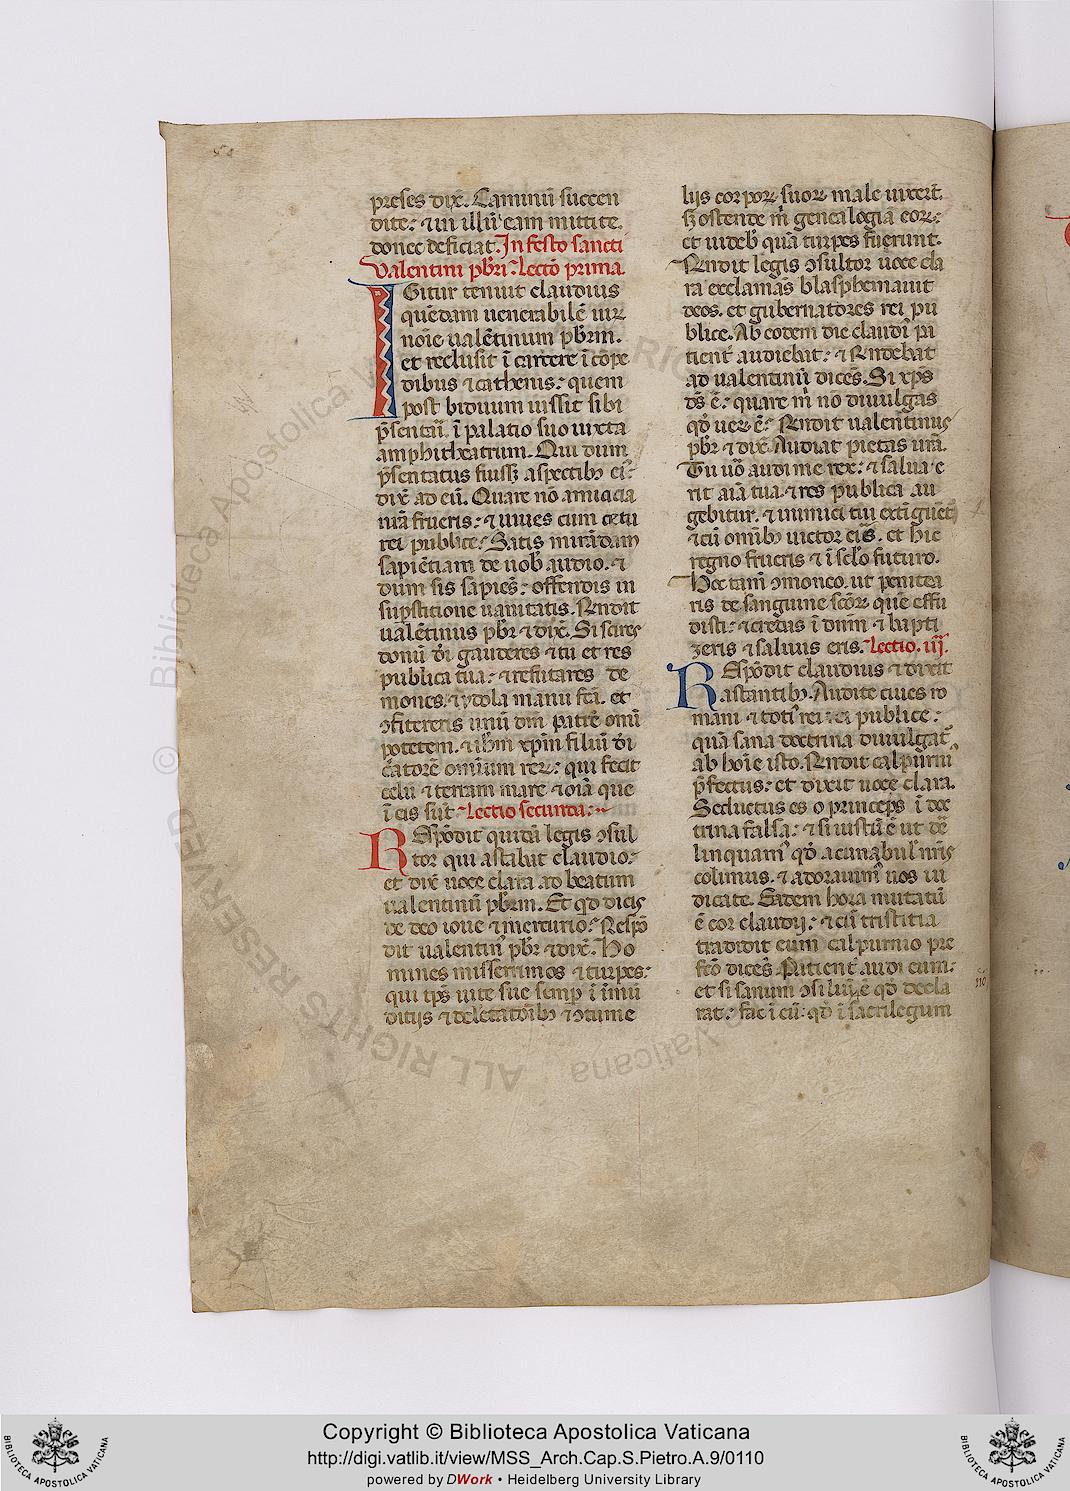 preses dix̄. Caminū succen
dite: ⁊ in illū eam mittite.
donec deficiat. In festo sancti
Valentini pb̄ri. Lectō prima.
IGitur tenuit claudius
quēdam uenerabilē uirū
noīe ualētinum pb̄rm.
et reclusit ī carcere ī cōpe
dibus ⁊ cathenis: quem
post biduum iussit sibi
p̄sentari ī palatio suo iuxta
amphitheatrum. Qui dum
p̄sentatus fuiss̄ aspectibȝ eiꝰ:
dix̄ ad eū. Quare nō amicicia
nr̄a frueris: ⁊ uiues cum cetu
rei publice: Satis mirādam
sapiētiam de uobꝭ audio. ⁊
dum sis sapiēs: offendis in
sup̄stitione uanitatis. R̄ndit
ualētinus pb̄r ⁊ dix̄. Si scires
donū dī gauderes ⁊ tu et res
publica tua: ⁊ refutares de
mones. ⁊ ydola manu fc̄a. et
ꝯfitereris unū dm̄ patrē omī
potētem. ⁊ ih̄m xp̄m filiū dī
c̄atorē omīum reꝝ: qui fecit
celū ⁊ terram mare ⁊ oīa que
ī eis sūt. Lectio secunda:
REspōdit quidā legis ꝯsul
tor qui astabat claudio:
et dix̄ uoce clara ad beatum
ualentinū pb̄rm. Et qd̄ dicis
de deo ioue ⁊ mercurio: Respō
dit ualentinꝰ pb̄r ⁊ dix̄. Ho
mines miserrimos ⁊ turpes:
qui tp̄s uite sue semp̄ ī īmū
ditijs ⁊ delectatōībȝ ⁊ ꝯtume
lijs corpoꝝ suoꝝ male uixerū̄t.
Sȝ ostende m̄ genealogiā eoꝝ:
et uidebꝭ quā turpes fuerunt.
R̄ndit legis ꝯsultor uoce cla
ra exclamās blasphemauit
deos. et gubernatores rei pu
blice. Ab eodem die claudiꝰ pa
tient̄ audiebat: ⁊ R̄ndebat
ad ualentinū dicēs. Si xp̄s
ds̄ ē: quare m̄ nō diuulgas
qd̄ ueꝝ ē: R̄ndit ualentinus
pb̄r ⁊ dix̄. Audiat pietas ur̄a.
Tu uō audi me rex: ⁊ salua e
rit aīa tua. ⁊ res publica au
gebitur. ⁊ inimici tui extīguēt̄
⁊ cū omībȝ uictor eris. et hic
regno frueris ⁊ ī sc̄lo futuro.
Hoc tam̄ ꝯmoneo. ut penitea
ris de sanguine sc̄oꝝ quē effu
disti: ⁊ credas ī dnm̄ ⁊ bapti
zeris ⁊ saluus eris. Lectio. iij.
REspōdit claudius ⁊ dixit
astantibȝ. Audite ciues ro
mani ⁊ totiꝰ rei publice:
quā sana doctrina diuulgat̄
ab hoīe isto. R̄ndit calpurniꝰ
p̄fectus: et dixit uoce clara.
Seductus es o princeps ī doc
trina falsa: ⁊ si iustū ē ut de
linquamꝰ qd̄ a cunabulꝭ nr̄is
colimus. ⁊ adorauimꝰ uos iu
dicate. Eadem hora mutatū
ē cor claudij: ⁊ cū tristitia
tradidit eum calpurnio pre
fcō dicēs. Patient̄ audi eum:
et si sanum ꝯsiliū ē qd̄ decla
rat: fac ī eū: qd̄ ī sacrilegum
Copyright © Biblioteca Apostolica Vaticana
http://digi.vatlib.it/view/MSS_Arch.Cap.S.Pietro.A.9/0110
powered by DWork • Heidelberg University Library